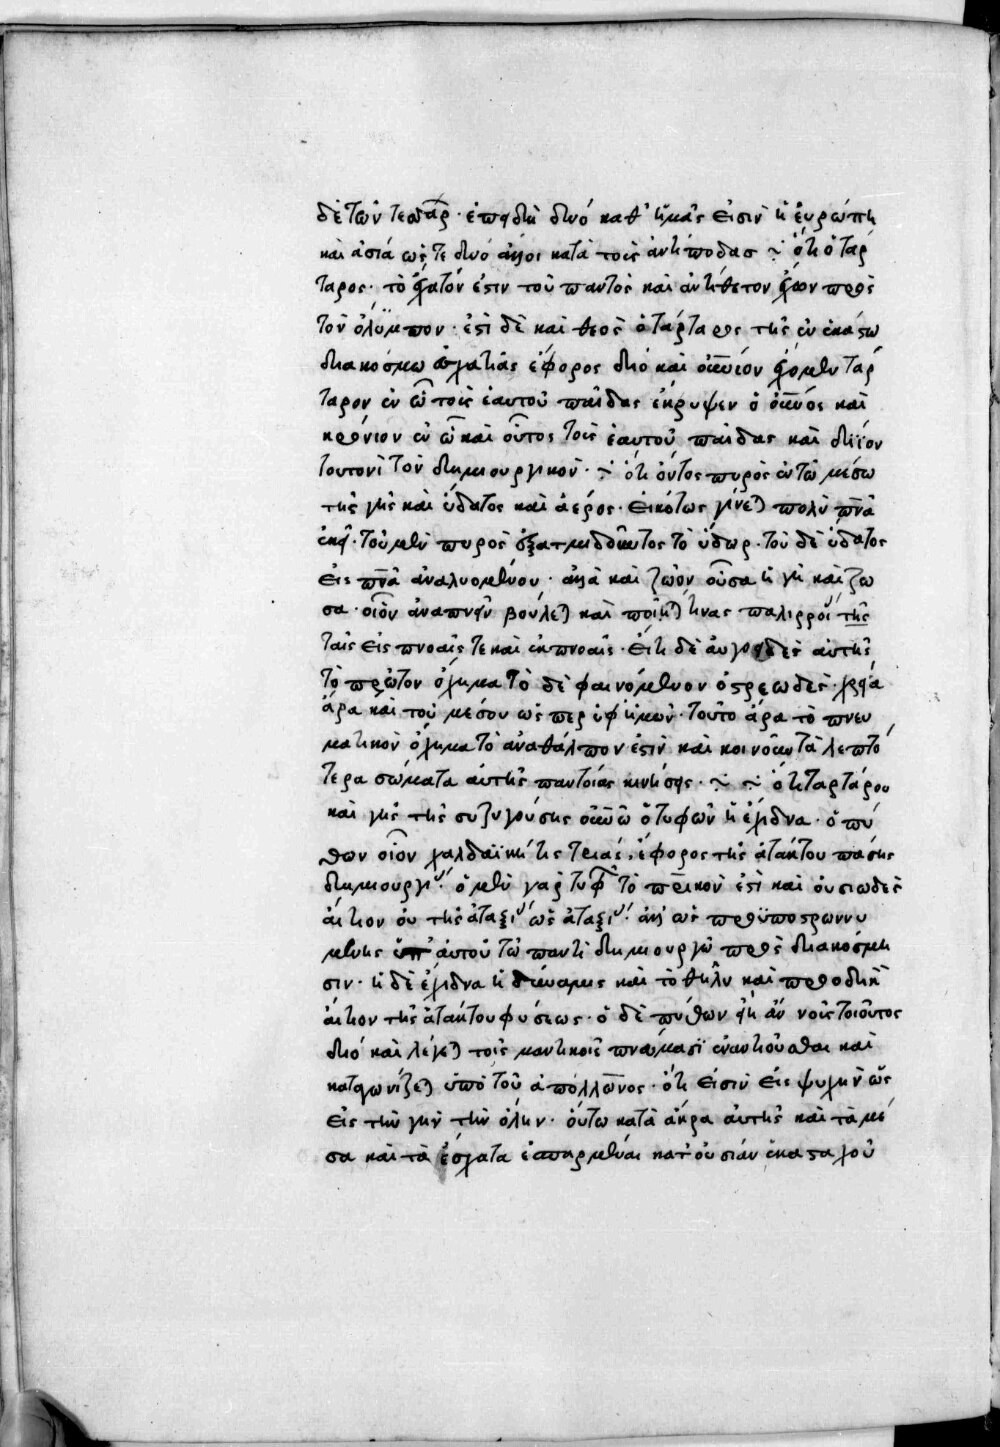 δὲ τῶν τεσσάρ· ἐπειδὴ δυό καθ' ἡμᾶς εἰσιν ἡ εὐρώπη
καὶ ἀσιά ὥς τε δυό ἄλλοι κατὰ τοὺς ἀντίποδας ~ ὅτι ὁ τάρ
ταρος· τὸ ἔσχατόν ἐστιν τοῦ παντὸς καὶ ἀντίθετον ἔχων πρὸς
τὸν ὀλύμπον· ἐστὶ δὲ καὶ θεὸς ὁ τάρταρος τῆς ἐν ἑκάστω
διακόσμω ἐσχατιᾶς ἔφορος διό καὶ οὐνιόν ἔχομεν ταρ
ταρον ἐν ᾧ τοὺς ἑαυτοῦ παῖδας ἔκρυψεν ὁ οὐνός καὶ
κρόνιον ἐν ᾧ καὶ οὗτος τοὺς ἑαυτοῦ παίδας καὶ διΐον
τουτονὶ τὸν δημιουργικόν· ~ ὅτι ὄντος πυρὸς ἐν τῶ μέσω
τῆς γῆς καὶ ὕδατος καὶ ἀέρος· εἰκότως γίνεται πολὺ πνᾶ
ἐκεῖ· τοῦ μὲν πυρὸς ἐξατμιδοῦντος τὸ ὕδωρ· τοῦ δὲ ὕδατος
εἰς πνᾶ ἀναλυομένου· ἀλλὰ καὶ ζῶον οὖσα ἡ γῆ καὶ ζῶ
σα· οἷον ἀναπνεῖν βούλεται καὶ ποιεῖται τινας παλιρροί της
ταῖς εἰς πνοαῖς τε καὶ ἐκπνοαῖς· ἔτι δὲ αὐγοειδὲς αὐτῆς
τὸ πρῶτον ὄχημα τὸ δὲ φαινόμενον ὀστρεῶδες· χρεία
ἄρα καὶ τοῦ μέσου ὥς περ ἐφ ἡμῶν· τοῦτο ἄρα τὸ πνευ
ματικὸν ὄχημα τὸ ἀναθάλπον ἐστὶν καὶ κινοῦν τὰ λεπτό
τερα σώματα αὐτῆς παντοίας κινήσεις· ~ ~ ὅτι ταρτάρου
καὶ γῆς τῆς συζυγούσης οὐνῶ ὁ τυφῶν ἡ ἔχιδνα· ὁ πύ
θων οἷον χαλδαϊκή τις τριάς, ἔφορος τῆς ἀτάκτου πάσης
δημιουργί· ὁ μὲν γὰρ τυφ τὸ πρικὸν ἐστὶ καὶ οὐσιῶδες
αἴτιον οὐ τῆς ἀταξί ὡς ἀταξί· ἀλλ' ὡς προϋποστρωννυ
μένης αὐτοῦ τῶ παντὶ δημιουργῶ πρὸς διακόσμη
σιν· ἡ δὲ ἔχιδνα ἡ δύναμις καὶ τὸ θῆλυ καὶ προοδικὸ
αἴτιον τῆς ἀτάκτου φύσεως· ὁ δὲ πύθων εἴη ἂν νοῦς τοιοῦτος
διό καὶ λέγεται τοῖς μαντικοῖς πνεύμασϊ ἐναντιοῦσθαι καὶ
καταγωνίζεται ὑπὸ τοῦ ἀπόλλωνος· ὅτι εἰσὶν εἰς ψυχὴν ὡς
εἰς τὴν γῆν τὴν ὅλην· οὕτω κατὰ ἄκρα αὐτῆς καὶ τὰ μέ
σα καὶ τὰ ἔσχατα ἐσπαρμέναι κατ' οὐσίαν ἑκασταχοῦ